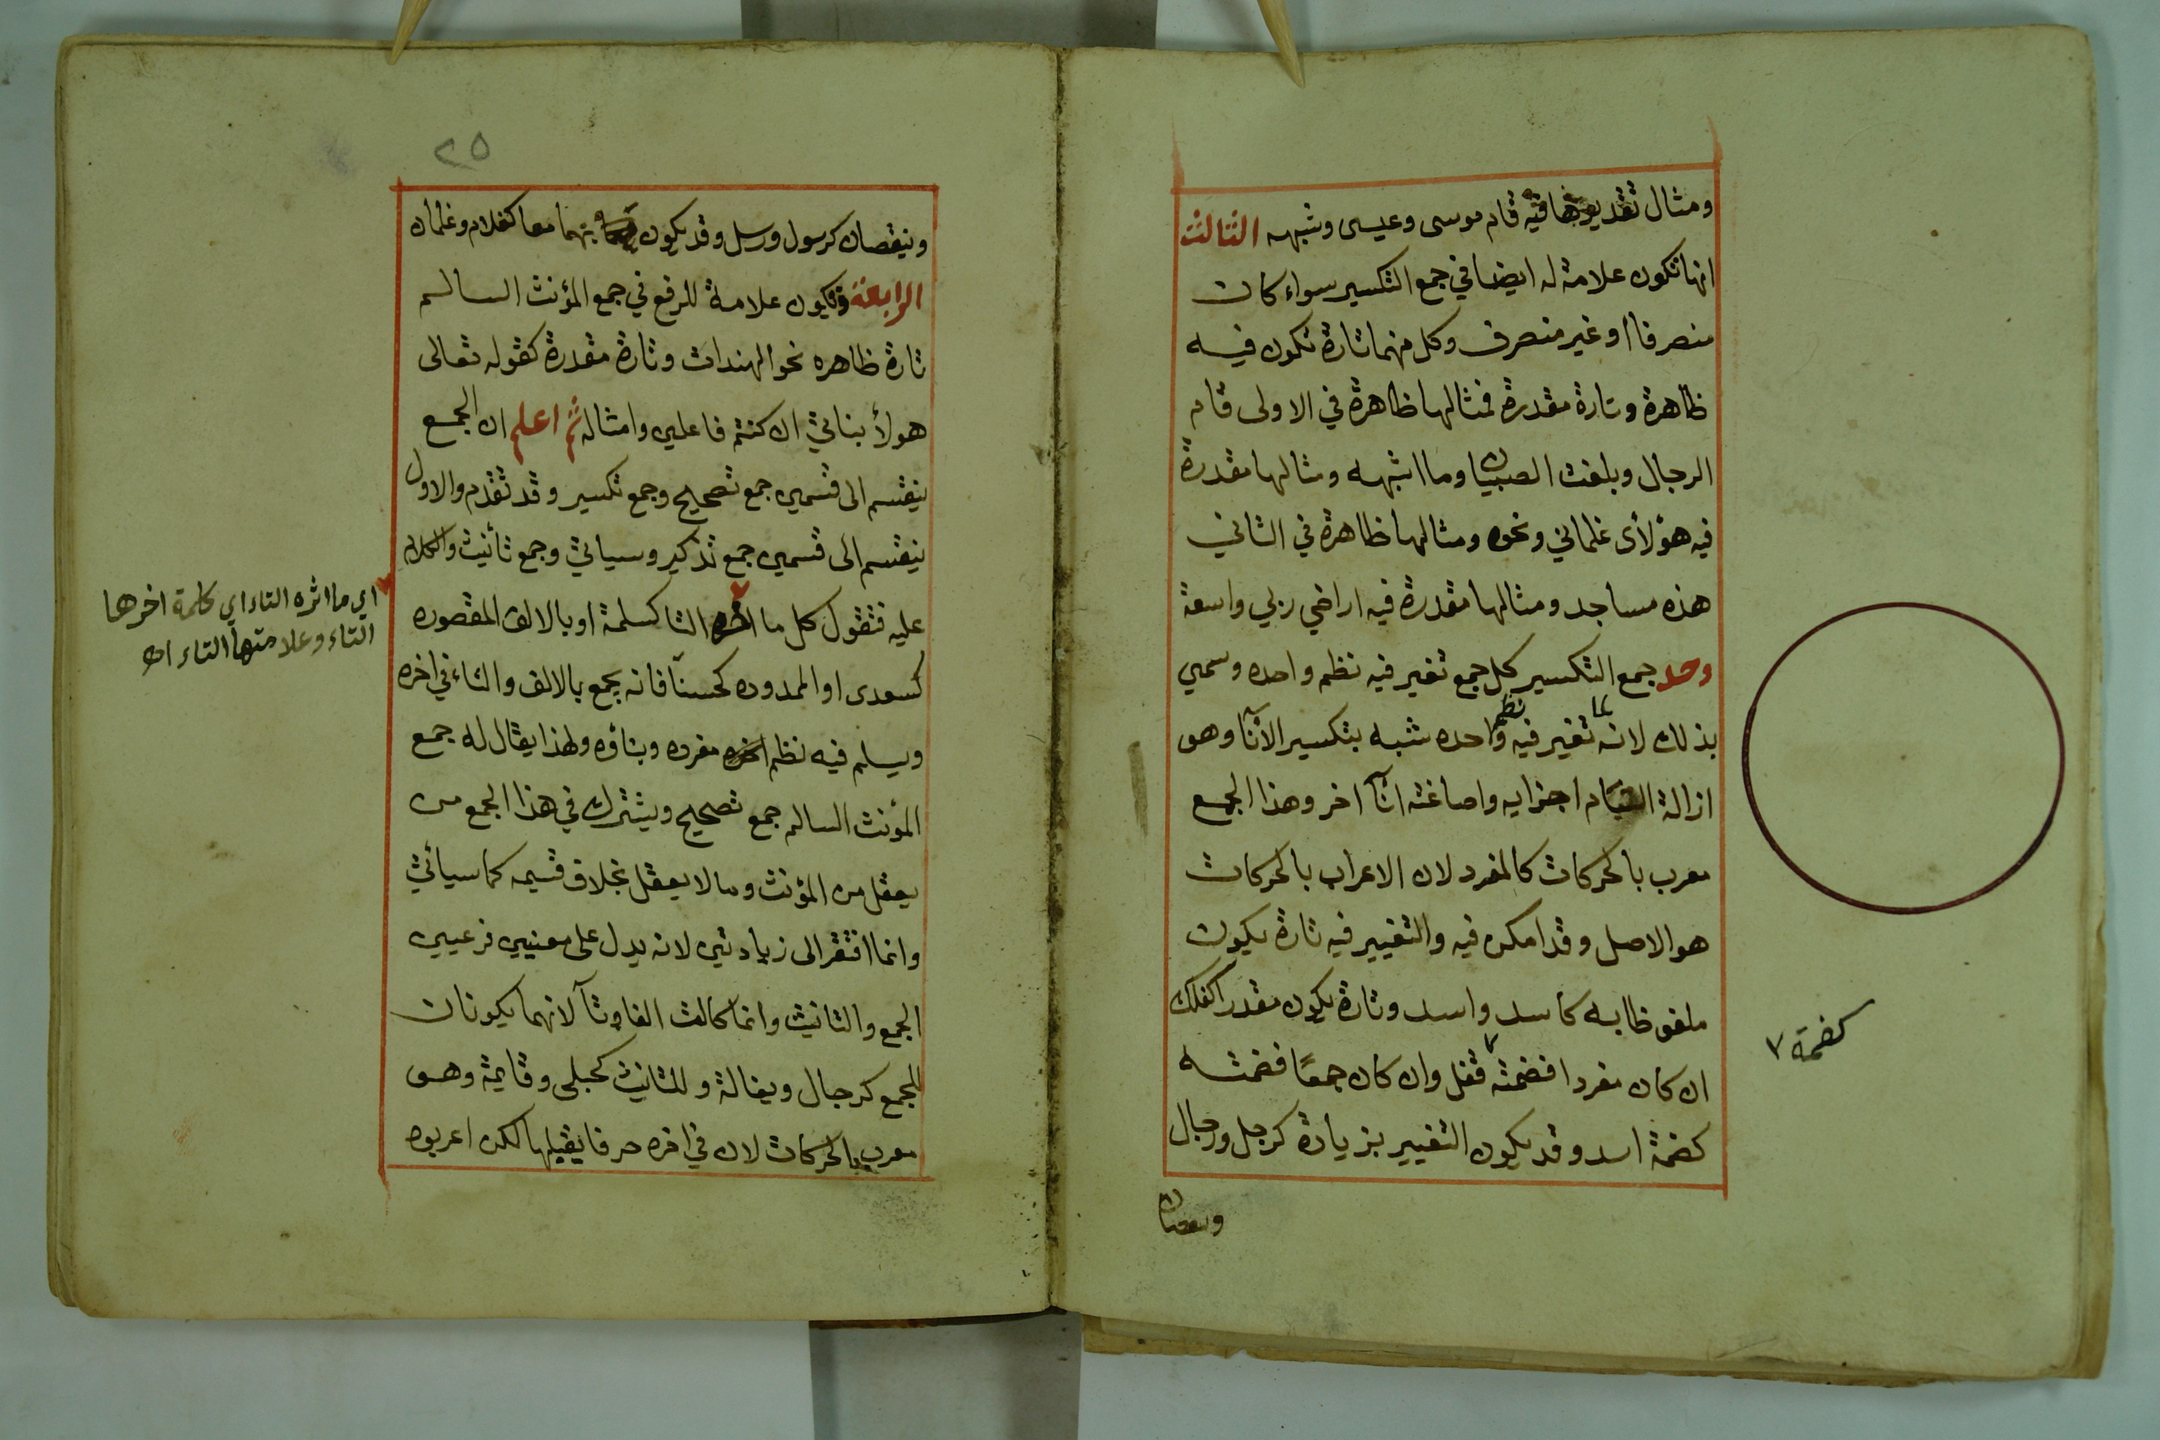 ومثال تقديرها فيه قام موسى وعيسى وشبهه الثالث
انها تكون علامة له ايضا في جمع التكسير سواء كان
منصرفا او غير منصرف وكل منهما تارة تكون فيه
ظاهرة وتارة مقدرة فمثالها ظاهرة في الاولى قام
الرجال وبلغت الصبيان وما اشبهه ومثالها مقدرة
فيه هؤلأى غلماني ونحوه ومثالها ظاهرة في الثاني
هذه مساجد ومثالها مقدرة فيه اراضي ربي واسعة
وحد جمع التكسير كل جمع تغير فيه نظم واحده وسمي
بذلك لانه لما تغير فيه نظم واحده شبه بتكسير الأنآ وهو
ازالة التيام اجزايه واصاغته انآ اخر وهذا الجمع
معرب بالحركات كالمفرد لان الاعراب بالحركات
هو الاصل وقد امكن فيه والتغيير فيه تارة يكون
ملفوظا به كأسد واسد وتارة يكون مقدرا كفلك
ان كان مفردا فضمته قفل وان كان جمعًا فضمته
كضمة اسد وقد يكون التغيير بزيادة كرجل ورجال
كضمة ٧
وبنقصان
٢٥
وبنقصان كرسول ورسل وقد يكون بهما معا كغلام وغلمان
الرابعة وتكون علامة للرفع في جمع المؤنث السالم
تارة ظاهره نحو الهندات وتارة مقدرة كقوله تعالى
هولأ بناتي ان كنتم فاعلين وامثاله ثم اعلم ان الجمع
ينقسم الى قسمين جمع تصحيح وجمع تكسير وقد تقدم والاول
ينقسم الى قسمين جمع تذكير وسياتي وجمع تأنيث والكلام
عليه فنقول كل ما اخره التا كسلمة او بالالف المقصوره
كسعدى او الممدوده كحسنآ فانه يجمع بالالف والتاء في اخره
ويسلم فيه نظم مفرده وبناؤه ولهذا يقال له جمع
المؤنث السالم جمع تصحيح ويشترك في هذا الجمع من
يعقل من المؤنث وما لا يعقل بخلاف قسيمه كما سيأتي
وانما افتقر الى زيادتين لانه يدل على معنيين فرعيين
الجمع والتانيث وانما كانت الفا وتآ لانهما يكونان
للجمع كرجال وبغالة وللتانيث كحبلى وقايمة وهو
معرب بالحركات لان في اخره حرفا يقبلها لكن اعربوه
اي ما اثره التاء اي كلمة اخرها
التاء وعلامتها التاء